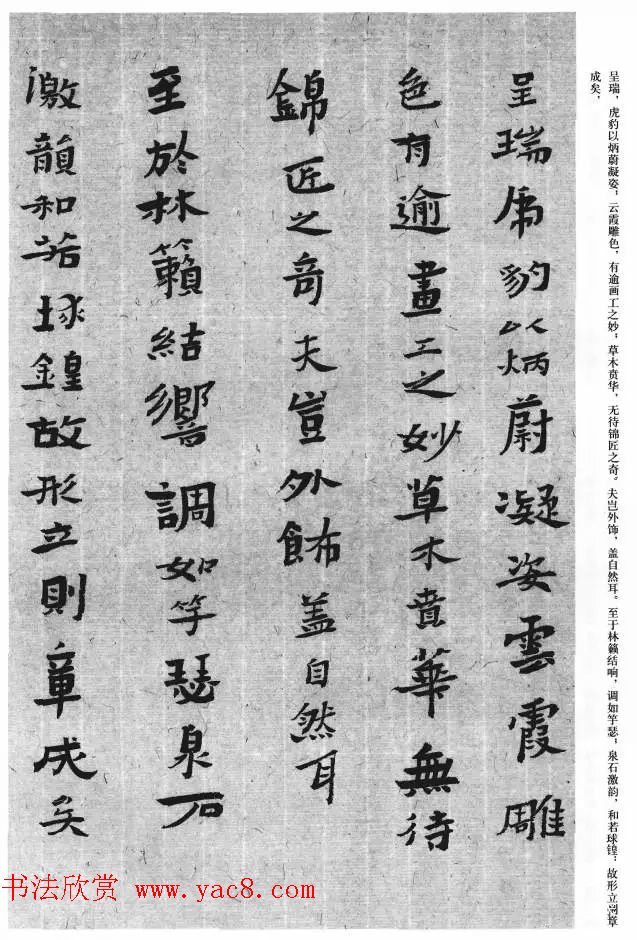 呈瑞，虎豹以炳蔚凝姿；云霞雕色，有逾画工之妙；草木贲华，无待锦匠之奇。夫岂外饰，盖自然耳。至于林籁结响，调如竽瑟；泉石激韵，和若球锽：故形立则章
成矣，
呈瑞虎豹以炳蔚凝姿雲霞雕
色有逾畫工之妙草木賁華無待
錦匠之奇夫豈外飾盖自然耳
至於林籟結響調如竽瑟泉石
激韻和若球鍠故形立則章成矣
书法欣赏 www.yac8.com